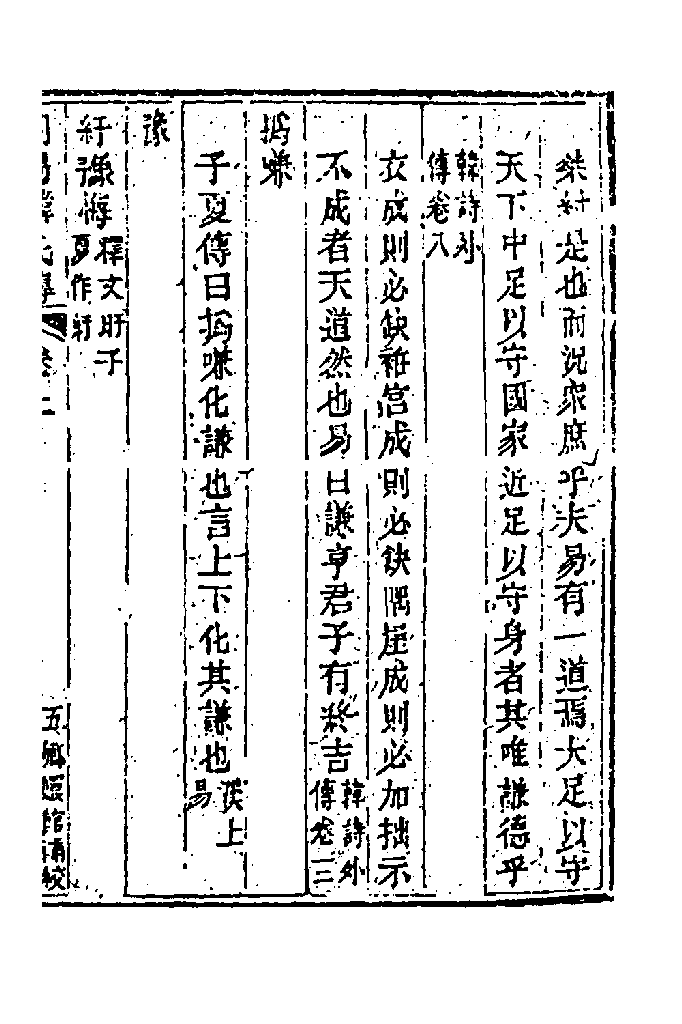 桀紂是也而況衆庶乎夫易有一道焉大足以守
天下中足以守國家近足以守身者其唯謙德乎
韓詩外
傳卷八
衣成則必缺衽宫成則必缺隅屋成則必加拙示
不成者天道然也易曰謙亨君子有終吉
韓詩外
傳卷三
撝嗛
子夏傳曰撝嗛化謙也言上下化其謙也
漢上
易
豫
紆豫悔
釋文盱子
夏作紆
周易韓氏 卷上
五鄉 館補校